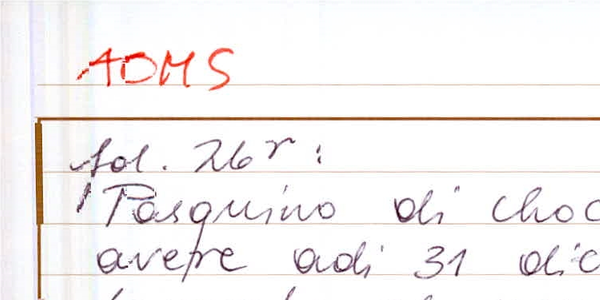 AOMS
fol. 26r:
Pasquino di choc
avere adi 31 dic